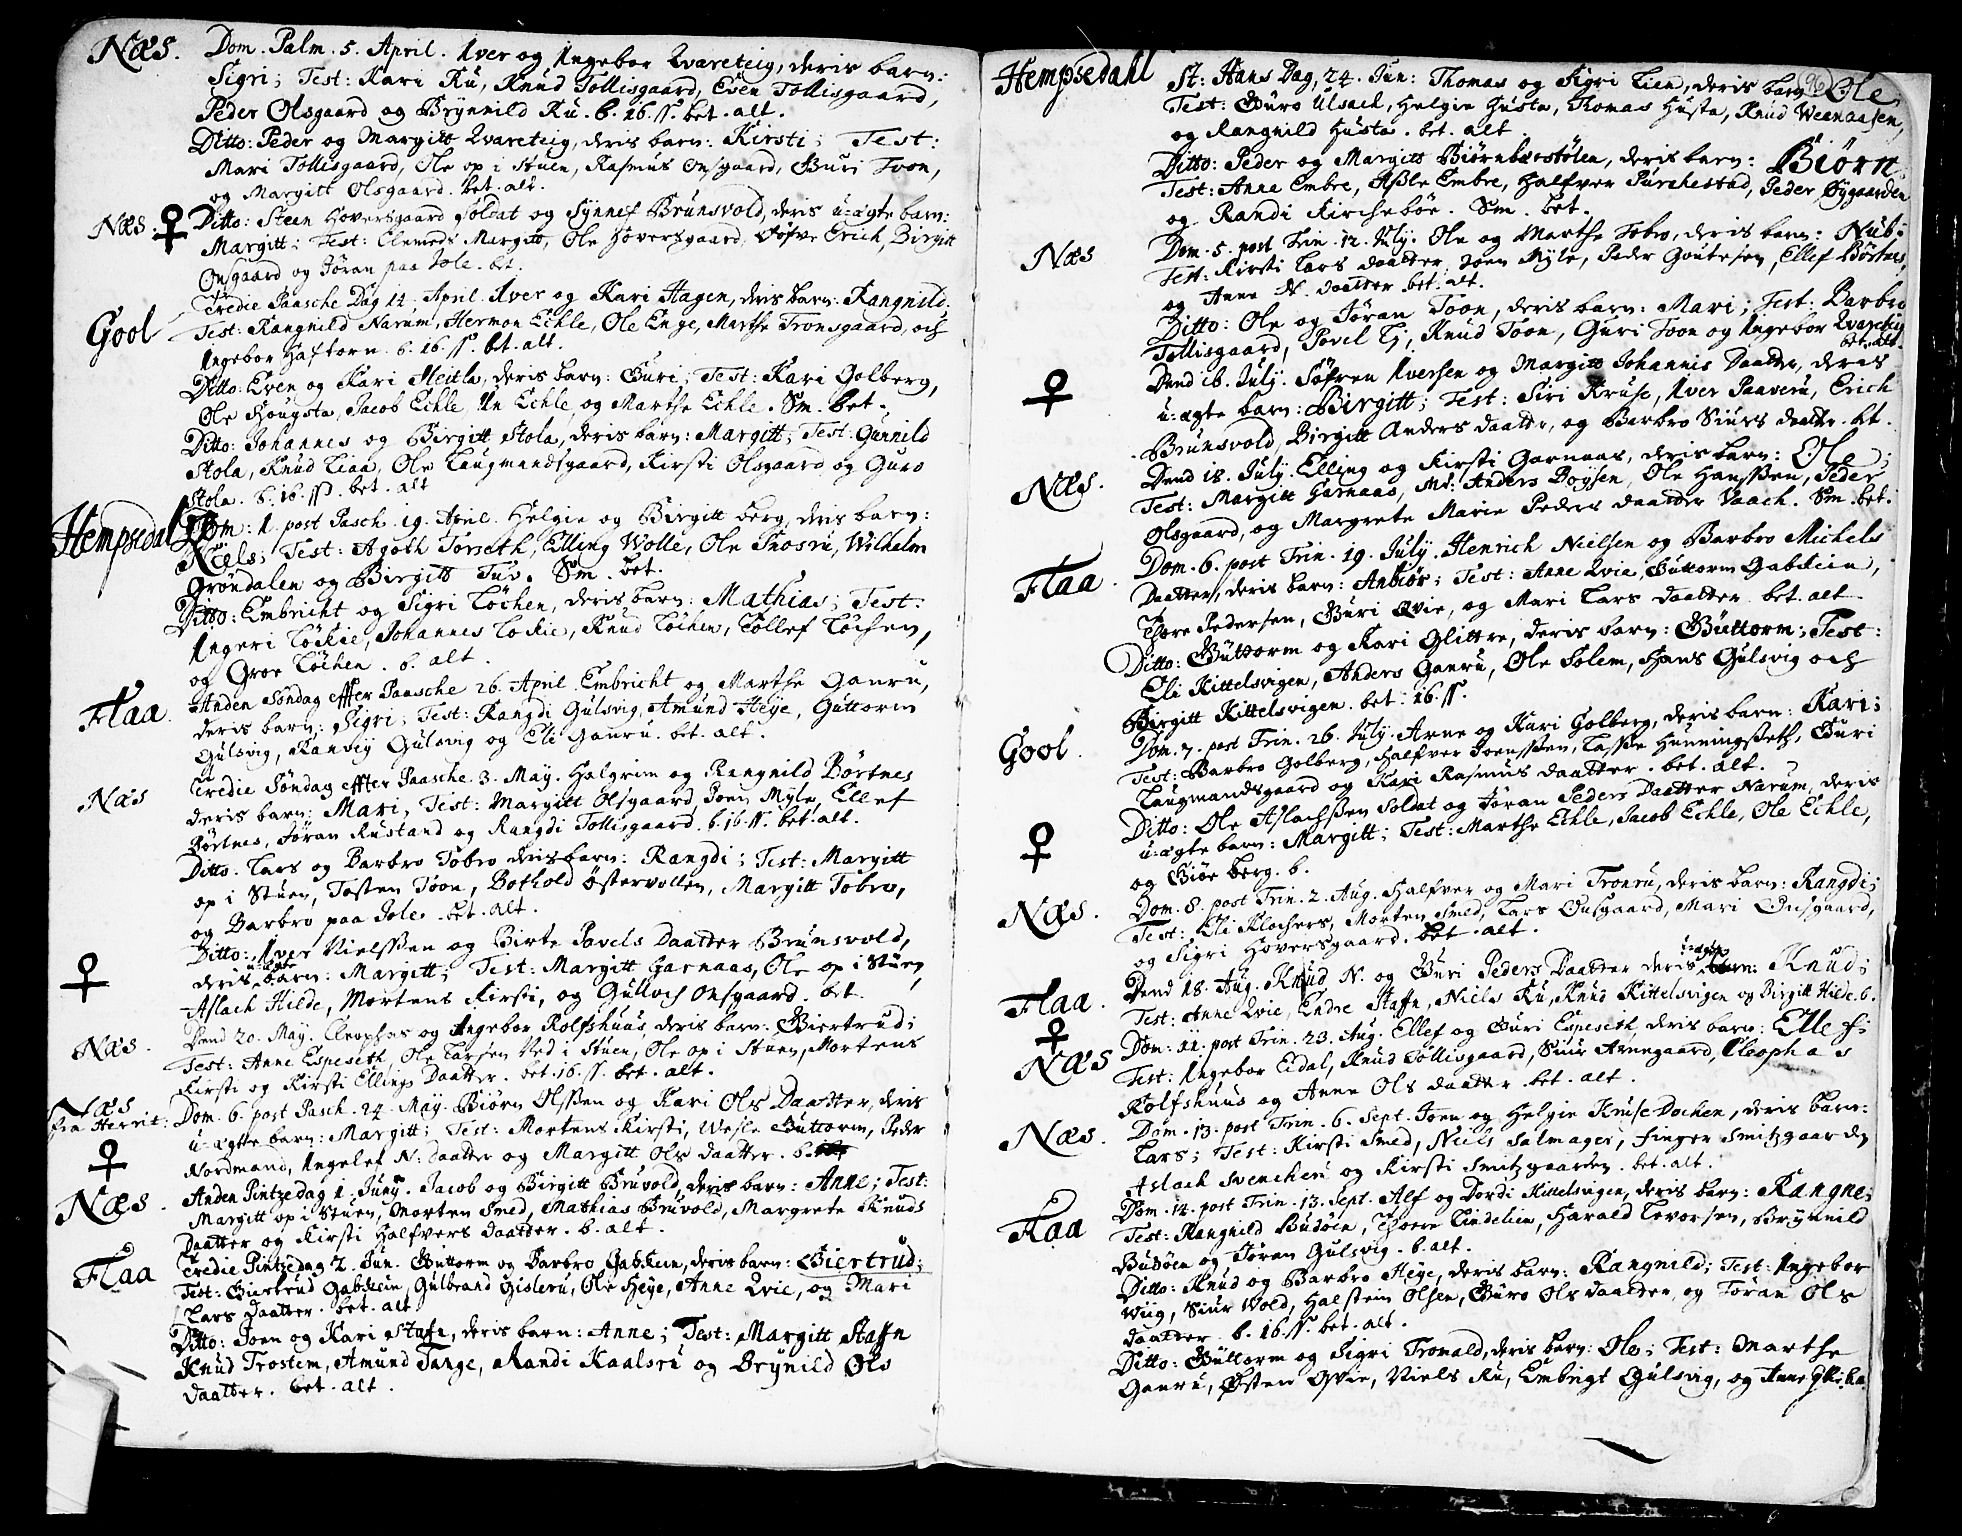 Næs. Dom. Palm. 5. April. Iver og Ingebor Qvareteig, deris barn:
Sigri; Test: Kari Ru, Knud Tollisgaard, Even Tollisgaard,
Peder Olsgaard og Brynnild Ru. b. 16. ss. bet. alt.
Ditto: Peder og Margitt Qvareteig, deris barn: Kirsti; Test:
Mari Tollisgaard, Ole op i Stuen, Rasmus Onsgaard, Guri Toon,
og Margitt Olsgaard. bet. alt.
Næs. ♀ Ditto: Steen Hoversgaard Soldat og Synnef Brunsvold, deris u-ægte barn:
Margitt; Test: Clemeds Margitt, Ole Hoversgaard, Erich, Birgitt
Onsgaard og Jøran paa Jole. bet.
Tredie Paasche Dag 14. April. Iver og Kari Hagen, deris barn: Rangnild.
Gool Test: Rangnild Narum, Hermon Echle, Ole Enge, Marthe Tronsgaard, och
Ingebor Haftorn. b. 16. ss. bet. alt.
Ditto: Even og Kari Meitla, deris barn: Guri; Test: Kari Golberg,
Ole Hougsta, Jacob Echle, Un Echle, og Marthe Echle. Sm. bet.
Ditto: Johannes og Birgitt Stola, deris barn: Margitt; Test: Gunnild
Stola, Knud Liaa, Ole Laugmandsgaard, Kirsti Olsgaard og Guro
Stola. b. 16. ss. bet. alt
Hempsedal Dom: 1. post Pasch. 19. April. Helgie og Birgitt berg, deris barn:
Niels; Test: Agoth Torseth, Elling Wolle, Ole Wilhelm
Grøndalen og Birgitt Tuv. Sm. bet.
Ditto: Embricht og Sigri Løchen, deris barn: Mathias; Test:
Ingeri Løkie, Johannes Løkie, Knud Løchen, Tollef Løchen,
og Groe Løchen. b. alt.
Flaa. Anden Søndag effter Paasche 26. April. Embricht og Marthe Ganru,
deris barn: Sigri; Test: Rangdi Gulsvig, Amund Heye, Guttorm
Gulsvig, Ranvey Gulsvig og Eli Ganru. bet. alt.
Næs Tredie Søndag effter Paasche. 3. May. Halgrim og Rangnild Børtnes
deris barn: Mari; Test: Margitt Olsgaard, Joen Myle, Ellef
Børtnes, Jøran Rustand og Rangdi Tollisgaard. b. 16. ss. bet. alt.
Ditto. Lars og Barbro Tobro deris barn: Rangdi; Test: Margitt
op i Stuen, Tosten Toon, Bothold Østervollen, Margitt Tobro,
og Barbro paa Jole. bet. alt.
♀ Ditto: Iver Nielssen og Birte Povels Daatter Brunsvold,
deris u-ægte barn: Margitt; Test: Margitt Garnaas, Ole op i Stuen
Aslach Hilde, Mortens Kirsti, og Gulloch Onsgaard. bet.
Næs. Dend 20. May. Cleophas og Ingebor Rolfshuus, deris barn: Giertrud;
Test: Anne Espeseth, Ole Larsen Ned i Stuen, Ole op i Stuen, Mortens
Kirsti og Kirsti Ellings Daatter. bet. 16. ss. bet. alt.
Næs
fra Herrit: Dom. 6. post Pasch. 24. May. Biørn Olssen og Kari Ols Daatter, deris
♀ u-ægte barn: Margitt; Test: Mortens Kirsti, Wesle Guttorm, Peder
Nordmand, Ingelef N. daatter og Margitt Ols daatter. b.
Næs. Anden Pintzedag 1. Juny. Jacob og Birgitt Bruvold, deris barn: Anne; Test:
Margitt op i Stuen, Morten Smed, Mathias Bruvold, Margrete Knuds
Daatter og Kirsti Halfvers daatter. b. alt.
Flaa Tredie Pintzedag 2. Jun. Guttorm og Barbro Gabstein, deris barn: Giertrud;
Test: Giertrud Gabstein, Gulbrand Gisleru, Ole Heye, Anne Qvie, og Mari
Lars Daatter. bet. alt
Ditto: Joen og Kari Stafn, deris barn: Anne; Test: Margitt Staffn
Knud Trostem, Amund Tange, Randi Kaalsru og Brynild Ols
daatter. bet. alt.
96
Hempsedahl St: Hans Dag, 24. Jun: Thomas og Sigri Lien, deris barn: Ole,
Test: Guro Ulsach, Helgie Husta, Thomas Husta, Knud
og Rangnild Husta. bet. alt.
Ditto: Peder og Margitt Biørnberstølen, deris barn: Biørn
Test: Anne Embre, Asle Embre, Halfver Purchestad, Peder Øygaarden
og Randi Kirchebøe. Sm. bet.
Næs Dom. 5. post Trin. 12. July. Ole og Marthe Tobro, deris barn: Nub:
Test: Kirsti Lars daatter, Joen Myle, Peder Goutesen, Ellef Børtnes
og Anne N. daatter bet. alt.
Ditto: Ole og Jøran Toon, deris barn: Mari; Test. Barbro
Tollisgaard, Povel Ej, Knud Toon, Guri Toon og Ingebor Qvareteig
bet. alt.
♀ Dend 16. July. Søfren Iversen og Margitt Johannis Daatter, deris
u-ægte barn: Birgitt; Test: Siri Kruse, Iver Paaveru, Erich
Brunsvold, Birgitt Anders daatter, og Barbro Siurs daatter. bet.
Næs. Dend 18. July. Elling og Kirsti Garnaas, deris barn: Ole;
Test: Margitt Garnaas, Mr: Anders Boysen, Ole Hanssen, Peder
Olsgaard, og Margrete Marie Peders daatter Vaach. Sm. bet.
Flaa. Dom. 6. post Trin. 19. July. Henrich Nielsen og Barbro Michels
Daatter, deris barn: Anbiør; Test: Anne Qvie, Guttorm Gabstein,
Thore Pedersen, Guri Qvie, og Mari Lars daatter bet. alt
Ditto: Guttorm og Kari Glittre, deris barn: Guttorm; Test:
Eli Kittelsvigen, Anders Ganru, Ole Solem, Hans Gulsvig och
Birgitt Kittelsvigen. bet. 16. ss.
Gool. Dom. 7. post Trin. 26. July. Arne og Kari Golberg, deris barn: Kari;
Test: Barbro Golberg, Halfver Joenssen, Lasse Hunningseth, Guri
Laugmandsgaard og Kari Rasmus daatter. bet. alt.
♀ Ditto: Ole Aslachssen Soldat og Jøran Peders Daatter Narum, deris
u-ægte barn: Margitt; Test: Marthe Echle, Jacob Echle, Ole Echle,
og Giøe berg. b.
Næs. Dom. 8. post Trin. 2. Aug. Halfver og Mari Tronru, deris barn: Rangdi;
Test: Eli Klochers, Morten Smed, Lars Onsgaard, Mari Onsgaard,
og Sigri Hoversgaard. bet. alt.
Flaa. Dend 18. Aug. Knud N. og Guri Peders Daatter deris u-ægte barn: Knud;
♀ Test: Anne Qvie, Endre Staffn, Niels Ru, Knud Kittelsvigen og Birgitt Hilde. b.
Næs Dom: 11. post Trin. 23. Aug. Ellef og Guri Espeseth, deris barn: Ellef;
Test: Ingebor Eidal, Knud Tollisgaard, Siur Arnegaard, Cleophas
Rolfshuus og Anne Ols daatter. bet. alt.
Næs. Dom. 13. post Trin. 6. Sept. Joen og Helgie Kruse Dochen, deris barn:
Lars; Test: Kirsti Smed, Niels Salmager, Finger Smitzgaarden
Aslach Svencheru og Kirsti Smitzgaarden. bet. alt.
Flaa Dom. 14. post Trin. 13. Sept. Alf og Dordi Kittelsvigen, deris barn: Rangne;
Test: Rangnild Budøen, Thore Lindelien, Harald Levorsen, Brynnild
Budøen og Jøran Gulsvig. b. alt.
Ditto: Knud og Barbro Heye, deris barn: Rangnild; Test: Ingebor
Wiig, Siur Wold, Halstein Olsen, Guro Ols daatter, og Jøran Ols
daatter. b. 16. ss. bet. alt.
Ditto: Guttorm og Sigri Tromald, deris barn: Ole; Test: Marthe
Ganru, Østen Qvie, Niels Ru, Embrigt Gulsvig, og Anne